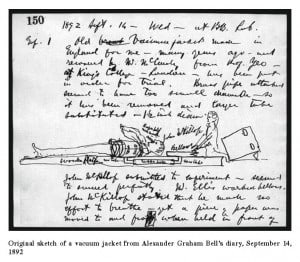 150
1892 Sept. 14 – Wed – at B.B. Lab.
Exp. 1 Old Vacuum jacket made in
England for me – many years ago – and
received by Mr. from
at King's College – London – has been put
in order for trial. Brass pipe attached
seemed to be too small diameter – so
it has been removed and larger tube
substituted –
John McKillop
Bellows
John McKillop submitted to experiment – seemed
to succeed perfectly. W. Ellis worked bellows.
John McKillop stated that he made no
effort to breathe – yet a piece of paper was
moved to and fro when held in front of
Original sketch of a vacuum jacket from Alexander Graham Bell's diary, September 14,
1892